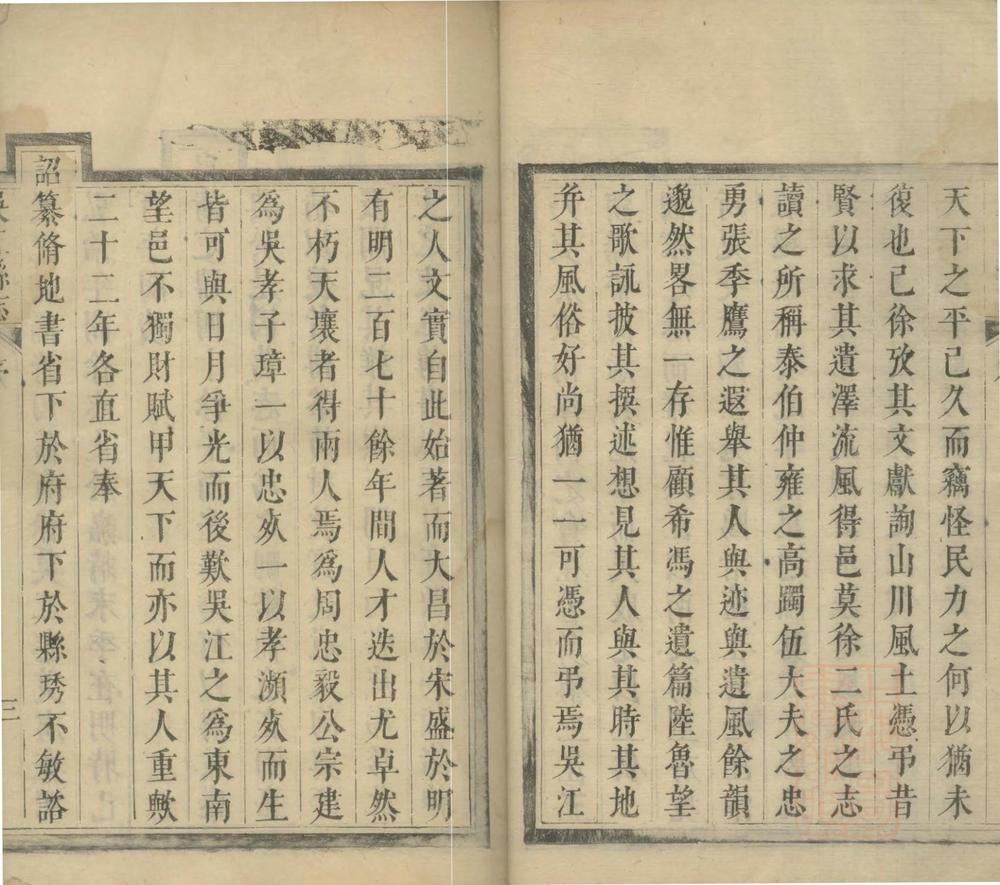 天下之平已久而竊怪民力之何以猶未
復也已徐攷其文獻詢山川風土憑弔昔
賢以求其遺澤流風得邑莫徐二氏之志
讀之所稱泰伯仲雍之高躅伍大夫之忠
勇張季鷹之遐舉其人與迹與遺風餘韻
邈然畧無一存惟顧希馮之遺篇陸魯望
之歌詠披其撰述想見其人與其時其地
弁其風俗好尚猶一一可憑而弔焉吳江
之人文實自此始著而大昌於宋盛於明
有明二百七十餘年間人才迭出尤卓然
不朽天壤者得兩人焉爲周忠毅公宗建
爲吳孝子璋一以忠死一以孝瀕死而生
皆可與日月爭光而後歎吳江之為東南
望邑不獨財賦甲天下而亦以其人重歟
二十二年各直省奉
詔纂脩地書省下於府府下於縣琇不敏謬
三